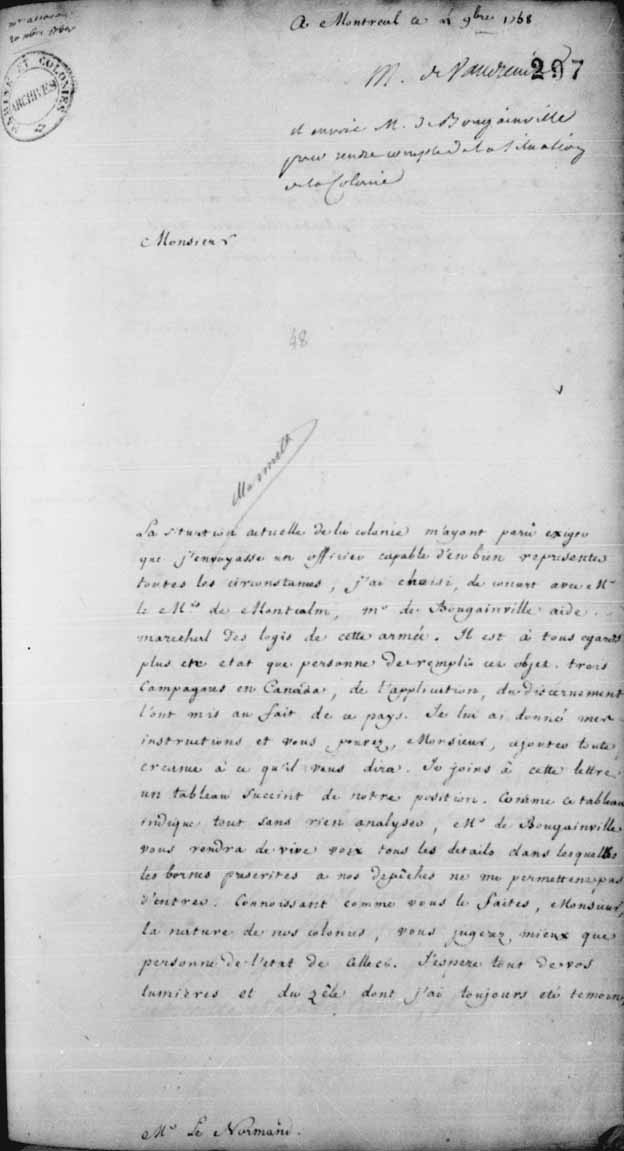 A Montreal ce 4 9bre 1758
MARINE ET COLONIES
ARCHIVES
M. de Vaudreuil
297
il envoie M. de Bougainville
pour rendre compte de la Situation
de la Colonie
Monsieur
48
La situation actuelle de la colonie m'ayant paru exiger
que j'envoyasse un officier capable d'en bien representer
toutes les circonstances, j'ai choisi, de concert avec Mr
le Mis de Montcalm, mr de Bougainville aide
marechal des logis de cette armée. Il est à tous egards
plus en etat que personne de remplir cet objet. trois
Campagnes en Canada, de l'application, du discernement
l'ont mis au fait de ce pays. Je lui ai donné mes
instructions et vous pouvez, Monsieur, ajouter toute
creance à ce qu'il vous dira. Je joins à cette lettre
un tableau succint de notre position. Comme ce tableau
indique tout sans rien analyser, Mr de Bougainville
vous rendra de vive voix tous les details dans lesquels
les bornes prescrites a nos depêches ne me permettent pas
d'entrer. Connoissant comme vous le faites, Monsieur,
la nature de nos colonies, vous jugerez mieux que
personne de l'etat de Celleci. J'espere tout de vos
lumières et du zêle dont j'ai toujours eté temoin,
Mr Le Normand.